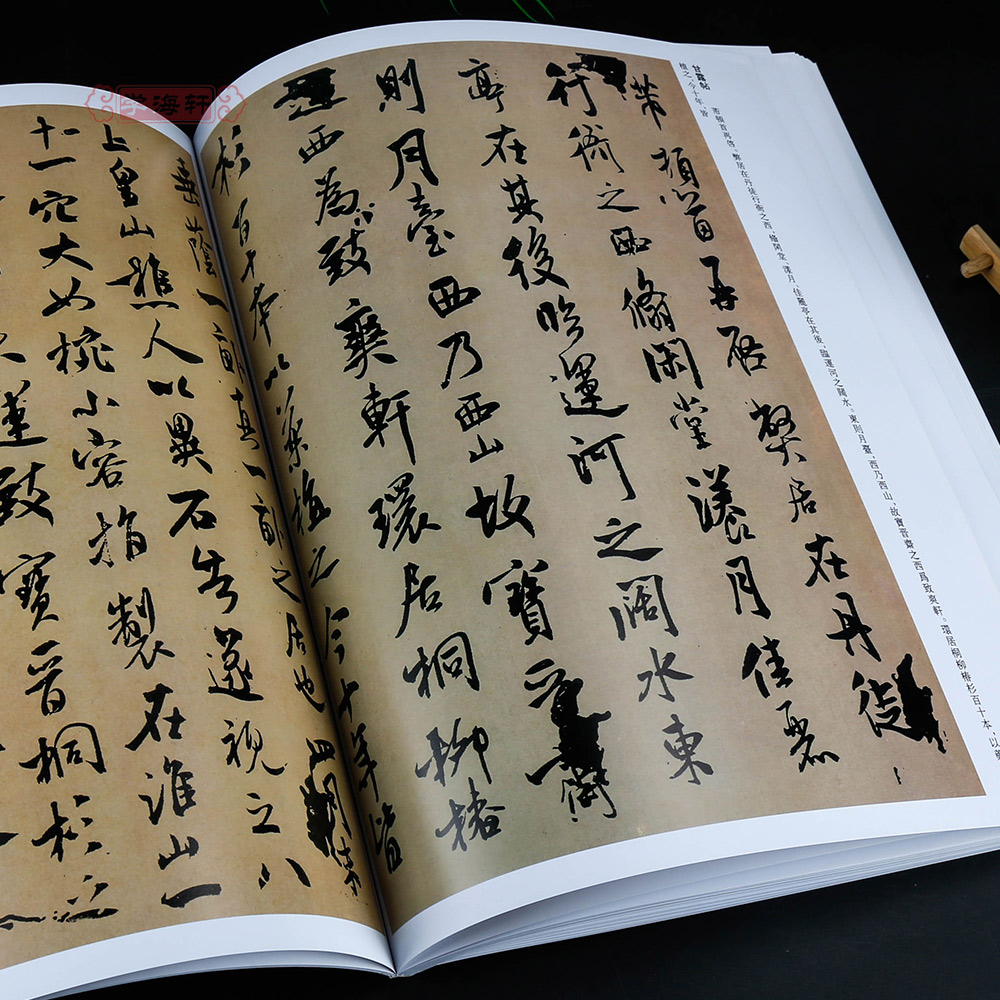 学海轩
甘露帖
芾頓首再啓。弊居在丹徒行衙之西，脩閑堂、漾月、佳麗亭在其後，臨運河之闊水。東則月臺，西乃西山，故寶晉齋之西爲致爽軒。環居桐柳椿杉百十本，以藥
植之，今十年，皆
芾頓首再啓弊居在丹徒
行衙之西脩閑堂漾月佳麗
亭在其後臨運河之闊水東
則月臺西乃西山故寶晉齋
之西為致爽軒環居桐柳椿
杉百十本以藥植之今十年皆
蔭一畝真一畝之居也四月末
上皇山樵人以異石告遂視之八
十一穴大如椀小容指製在淮山一
運致寶晉桐杉之